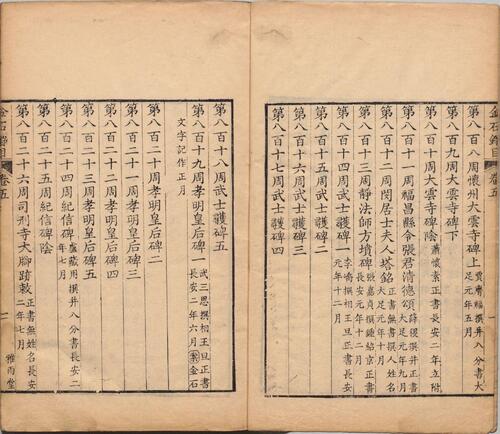 金石錄目 卷五 一
第八百八周懷州大雲寺碑上 賈膺福撰并八分書大足元年五月
第八百九周大雲寺碑下
第八百十周大雲寺碑陰 蕭懷素正書長安二年立附
第八百十一周福昌縣令張君清德頌 薛稷撰并正書大足元年九月
第八百十二周閑居士夫人塔銘 正書無撰人姓名大足元年十月
第八百十三周靜法師方墳碑 張嘉貞撰鍾紹京正書長安元年十二月
第八百十四周武士彠碑一 李嶠撰相王旦正書長安元年十二月
第八百十五周武士彠碑二
第八百十六周武士彠碑三
第八百十七周武士彠碑四
第八百十八周武士彠碑五
第八百十九周孝明皇后碑一 武三思撰相王旦正書長安二年六月案金石
文字記作正月
第八百二十周孝明皇后碑二
第八百二十一周孝明皇后碑三
第八百二十二周孝明皇后碑四
第八百二十三周孝明皇后碑五
第八百二十四周紀信碑 盧藏用撰并八分書長安二年七月
第八百二十五周紀信碑陰
第八百二十六周司刑寺大腳蹟敕 正書無姓名長安二年七月
金石錄目 卷五 一 雅雨堂